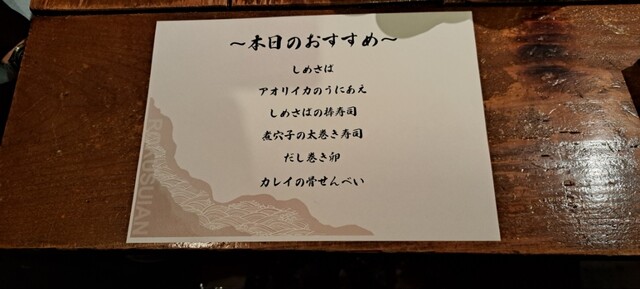 ～本日のおすすめ～
しめさば
アオリイカのうにあえ
しめさばの棒寿司
煮穴子の太巻き寿司
だし巻き卵
カレイの骨せんべい